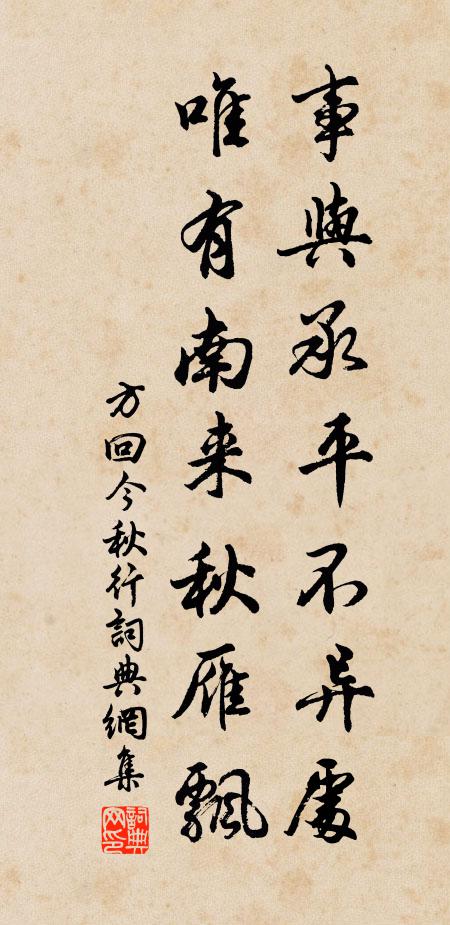 事與承平不异處
唯有南来秋雁飄
方回今秋行詞典網集
詞典网印